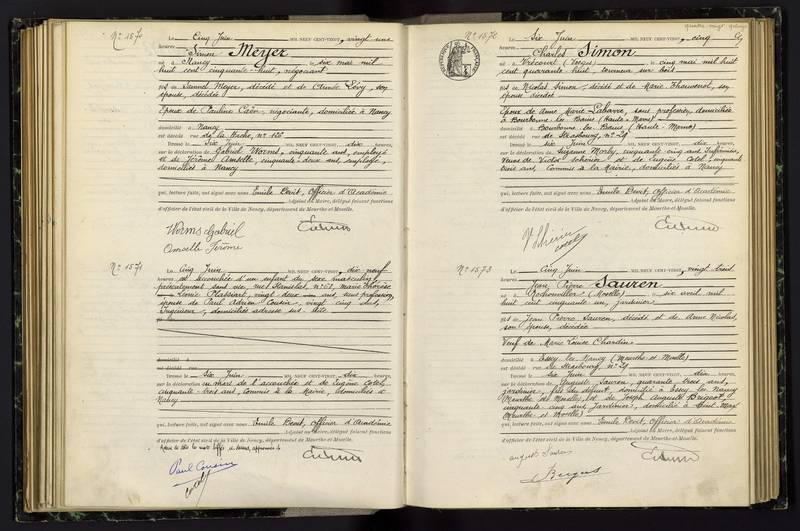 N° 1570
Le Cinq Juin MIL NEUF CENT-VINGT, vingt une
heures, Simon Meyer
né à Nancy le six mai mil
huit cent cinquante-huit, négociant
fils de Samuel Meyer, décédé et de Lévy, son
épouse, décédée
Époux de Pauline Caën, négociante, domiciliée à Nancy
domicilié à Nancy
est décédé rue de la Hache, n° 126
Dressé le Six Juin MIL NEUF CENT-VINGT, dix heures
sur la déclaration de Gabriel Worms, cinquante ans, employé
et de Jérôme Amselle, cinquante-deux ans, employé,
domiciliés à Nancy
qui, lecture faite, ont signé avec nous Emile Devit, Officier d'Académie
Adjoint au Maire, délégué faisant fonctions
d'officier de l'état civil de la Ville de Nancy, département de Meurthe-et-Moselle.
Worms Gabriel
Amselle Jérôme
N° 1571
Le Cinq Juin MIL NEUF CENT-VINGT, dix neuf
heures est accouchée d'un enfant du sexe masculin,
sans vie, rue Stanislas, Marie Thérèse
Louise vingt deux ans, sans profession,
épouse de Paul Adrien Cousin, vingt cinq ans,
Ingénieur, domiciliés
domicilié à
est décédé
Dressé le Six Juin MIL NEUF CENT-VINGT, dix heures
sur la déclaration du mari de l'accouchée et de Eugène Cotel,
cinquante trois ans, Commis à la Mairie, domiciliés à
Nancy
qui, lecture faite, ont signé avec nous Emile Devit, Officier d'Académie
Adjoint au Maire, délégué faisant fonctions
d'officier de l'état civil de la Ville de Nancy, département de Meurthe-et-Moselle.
Paul Cousin
N° 1572
Le Six Juin MIL NEUF CENT-VINGT, cinq
heures, Charles Simon
né à (Vosges) le cinq mai mil huit
cent quarante huit, bois
fils de Nicolas Simon, décédé et de Marie son
épouse décédée
Époux de Anne Marie Labarre, sans profession, domiciliée
à Bourbonne les Bains (Haute-Marne)
domicilié à Bourbonne les Bains (Haute-Marne)
est décédé rue de Strasbourg, n° 29
Dressé le Six Juin MIL NEUF CENT-VINGT, dix heures
sur la déclaration de Suzanne cinquante cinq ans,
Veuve de Victor et de Eugène Cotel, cinquante
trois ans, Commis à la Mairie, domiciliés à Nancy
qui, lecture faite, ont signé avec nous Emile Devit, Officier d'Académie
Adjoint au Maire, délégué faisant fonctions
d'officier de l'état civil de la Ville de Nancy, département de Meurthe-et-Moselle.
N° 1573
Le Cinq Juin MIL NEUF CENT-VINGT, vingt trois
heures, Jean Pierre Sauren
né à (Moselle) le six avril mil
huit cent cinquante un, jardinier
fils de Jean Pierre Sauren, décédé et de Anne Nicolas,
son épouse, décédée
Veuf de Marie Louise Chardin
domicilié à Essey les Nancy (Meurthe et Moselle)
est décédé rue de Strasbourg, n° 29
Dressé le Six Juin MIL NEUF CENT-VINGT, dix heures
sur la déclaration de Auguste Sauren, quarante trois ans,
jardinier, fils du défunt, domicilié à Essey les Nancy
(Meurthe et Moselle) et de Joseph Auguste
cinquante cinq ans, Jardinier, domicilié à Saint Max
(Meurthe et Moselle)
qui, lecture faite, ont signé avec nous Emile Devit, Officier d'Académie
Adjoint au Maire, délégué faisant fonctions
d'officier de l'état civil de la Ville de Nancy, département de Meurthe-et-Moselle.
august Sauren